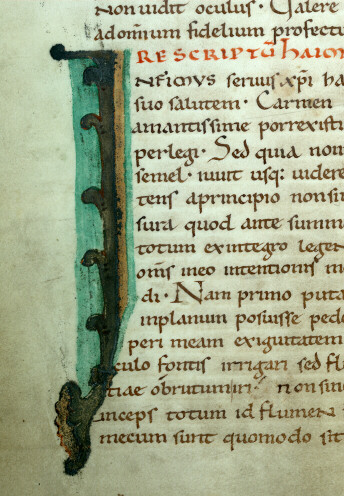 non vidit oculus · Valere
ad omnium fidelium profectu
RESCRIPTŪ HAIM
NFIMUS servus xp̄i ha
suo salutem · Carmen
amantissime porrexisti
perlegi · Sed quia non
semel · iuvit usq; videre
tens a principio non si
sura quod ante summ
totum ex integro legen
om̄s meo intentionis
di · Nam primo puta
inplanum posuisse ped
peri meam exiguitatem
culo fontis irrigari sed fl
tiae obrutum iri · non sin
inceps totum id flumen
mecum sunt quomodo sit